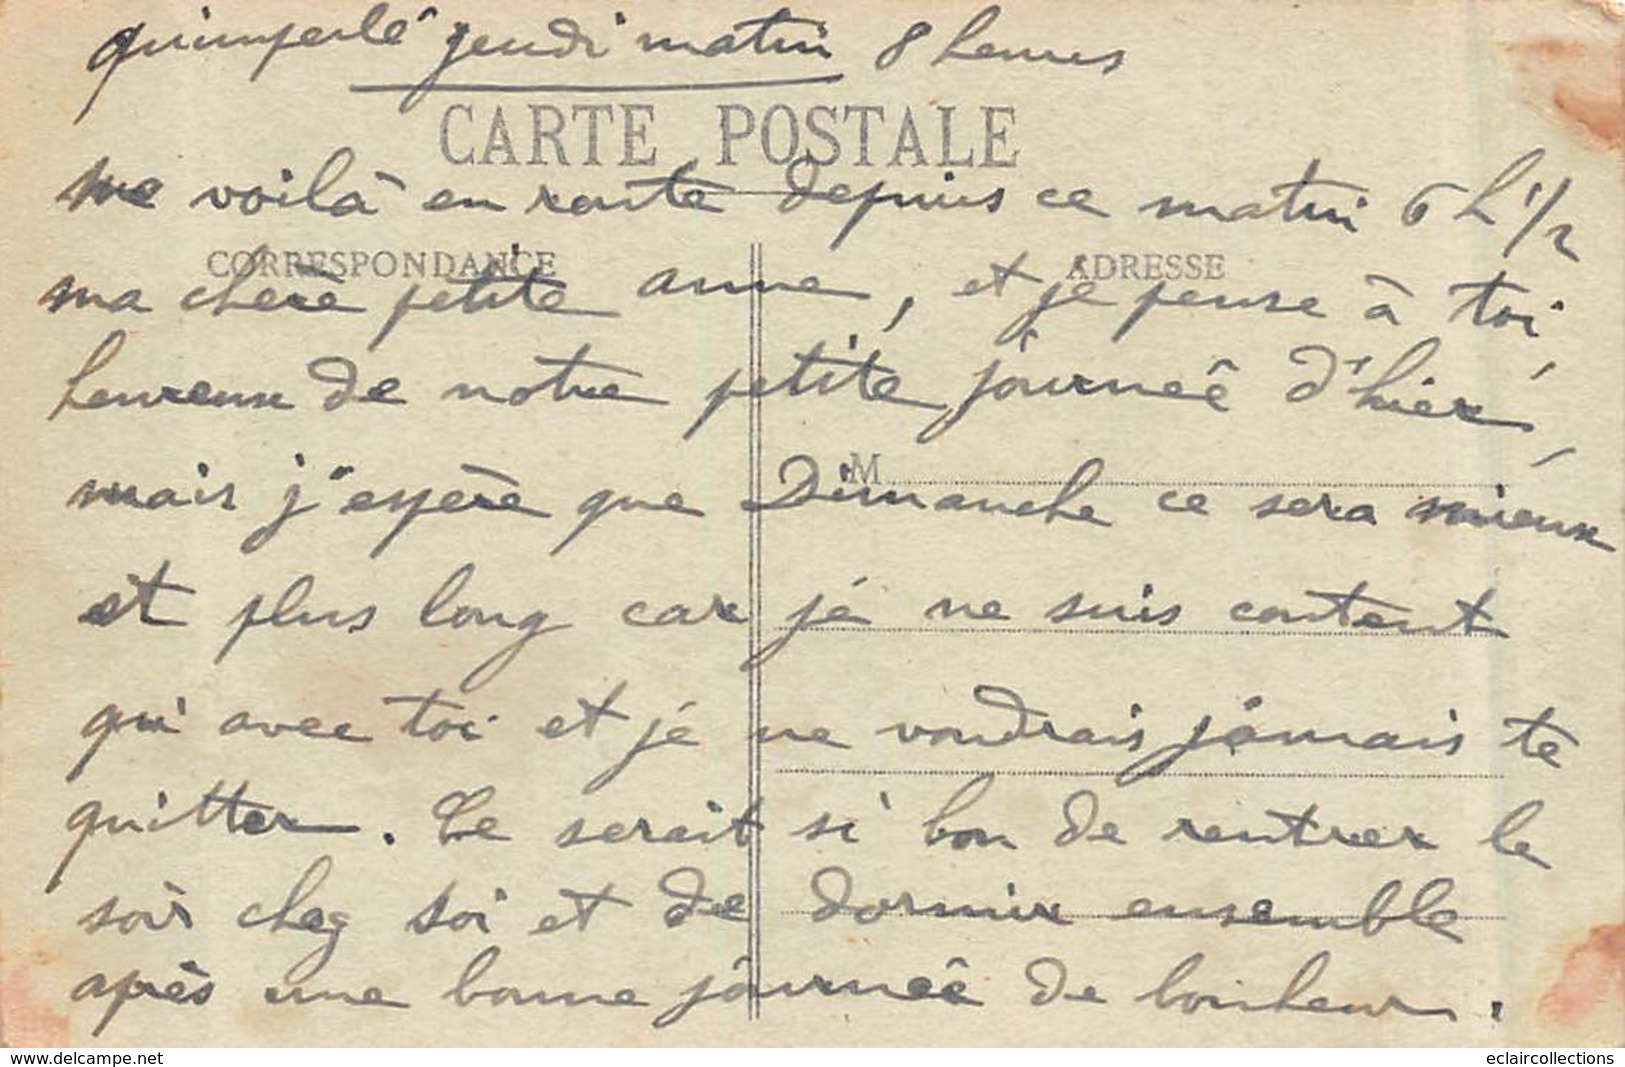 quimperlé jeudi matin 8 heures
CARTE POSTALE
me voilà en route depuis ce matin 6 h 1/2
CORRESPONDANCE
ADRESSE
ma chère petite anne, et je pense à toi,
heureux de notre petite journée d'hier,
M
mais j'espère que Dimanche ce sera mieux
et plus long car je ne suis content
qu'avec toi et je ne voudrais jamais te
quitter. Ce serait si bon de rentrer le
soir chez soi et de dormir ensemble
après une bonne journée de bonheur.
www.delcampe.net
eclaircollections